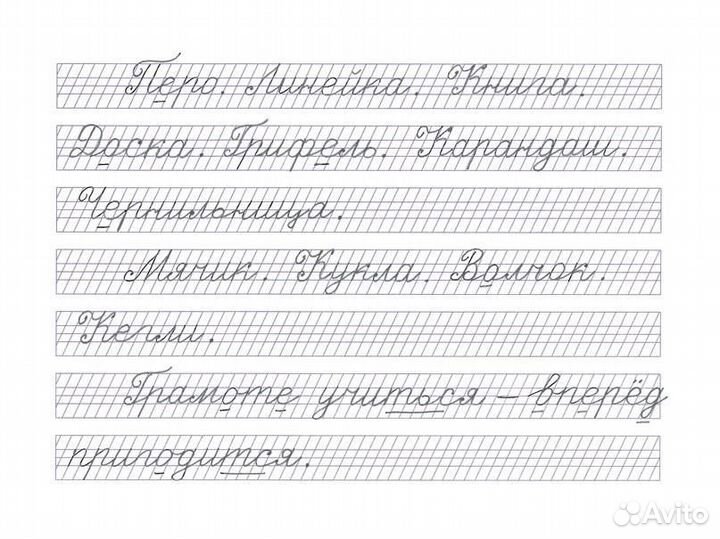 Перо. Линейка. Книга.
Доска. Грифель. Карандаш.
Чернильница.
Мячик. Кукла. Волчок.
Кегли.
Грамоте учиться – вперёд
пригодится.
Avito